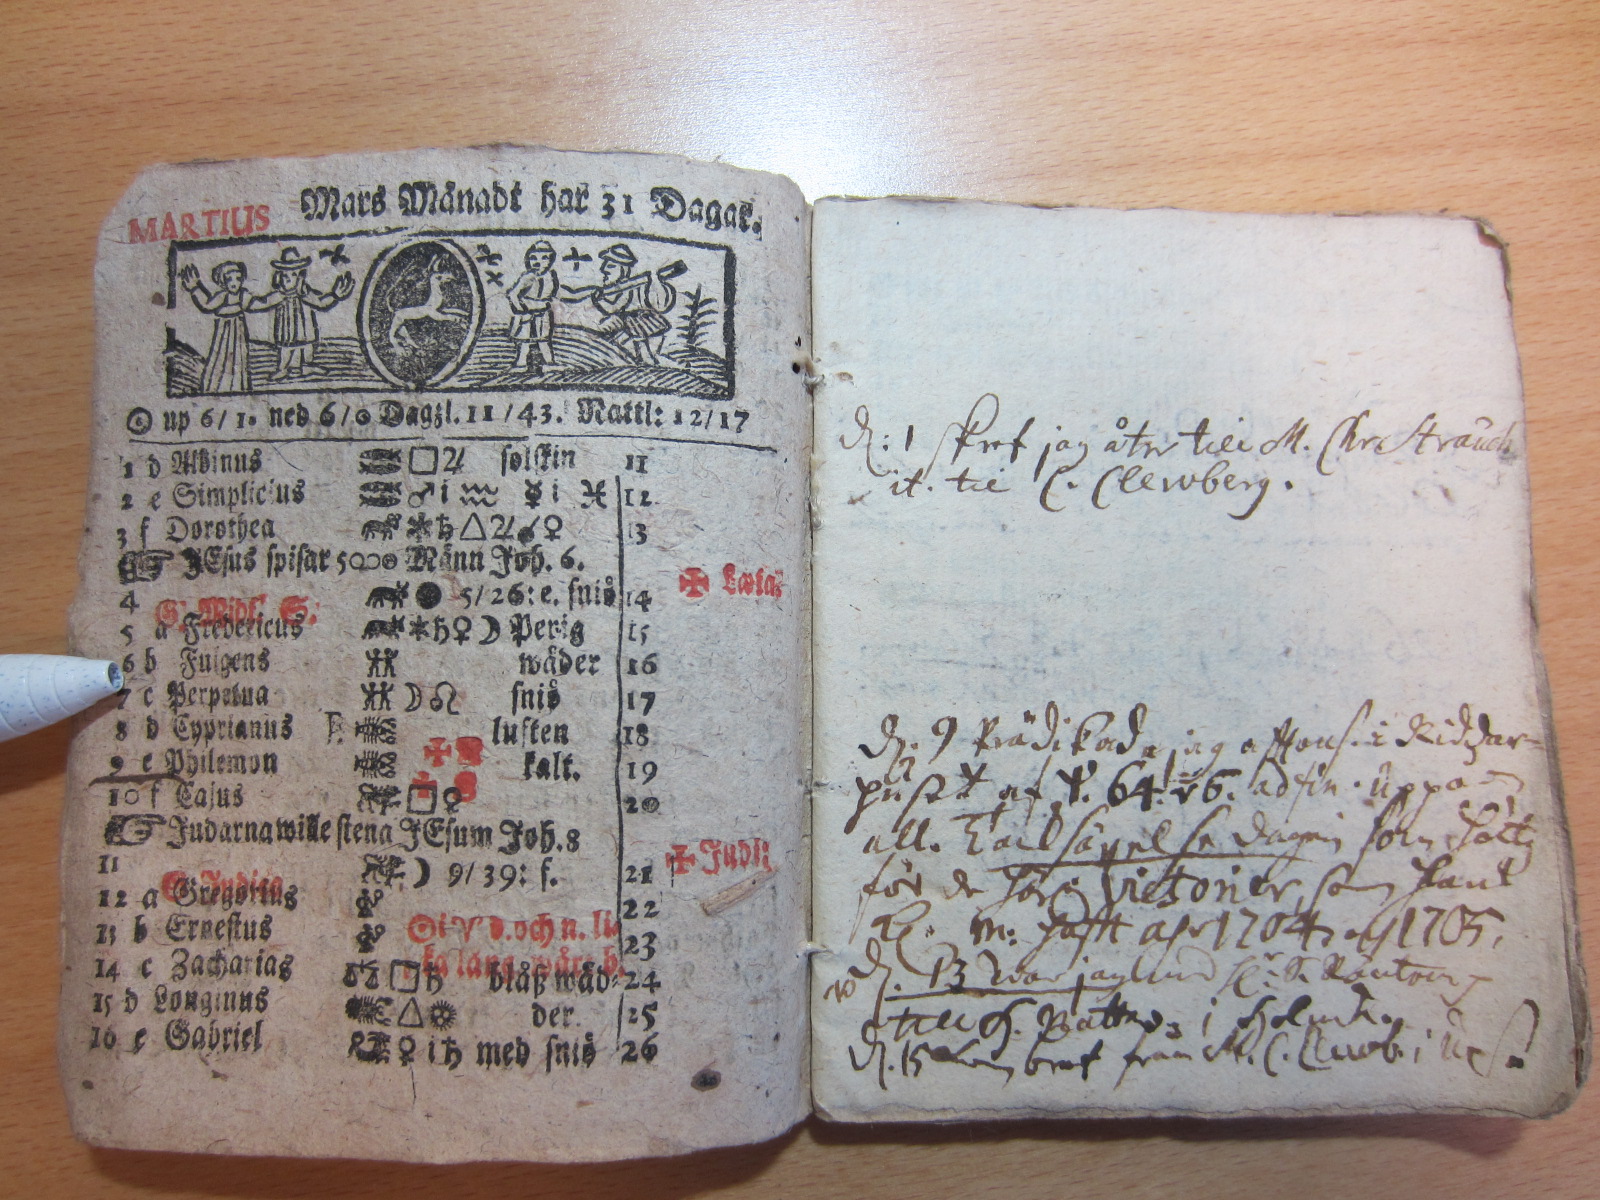 MARTIUS Mars Månadt har 31 Dagar.
☉ up 6/1. ned 6/0 Dagzl. 11/43. Nattl: 12/17
1 d Albinus □♃ solskin 11
2 e Simplicius ♂ i ♒ ☿ i ♓ 12
3 f Dorothea ✶♄△♃☌♀ 13
☞ JEsus spisar 5000 Männ Joh. 6.
4 G. Midf. S. ● 5/26: e. sniö 14 ✠ Læta
5 a Fredericus ✶♄♀☽ Perig 15
6 b Fuigens wäder 16
7 c Perpetua ☽♌ sniö 17
8 d Cyprianus luften 18
9 e Philemon kalt. 19
10 f Cajus □♀ 20
☞ Judarna wille stena JEsum Joh. 8
11 G. Judica ☽ 9/39: f. 21 ✠ Judi:
12 a Gregorius 22
13 b Ernestus ☉ i ♈ d. och n. li 23
14 c Zacharias □♄ blåß wäd- 24
15 d Longinus △ der. 25
16 e Gabriel ♀ i ♄ med sniö 26
D: 1 skref jag åter till M. Chr. Strauch
it. til C. Clewberg.
D. 9 Prädikade jag i Riddar-
huset af 64. 6. ad fin. uppå
all. Tacksäyelse dagen som hölts
för de Victorier, som
K. M: hafft åhr 1704 och 1705.
D. 13 war jag
till H. i
D. 15 bref från M. C. Clewb. i